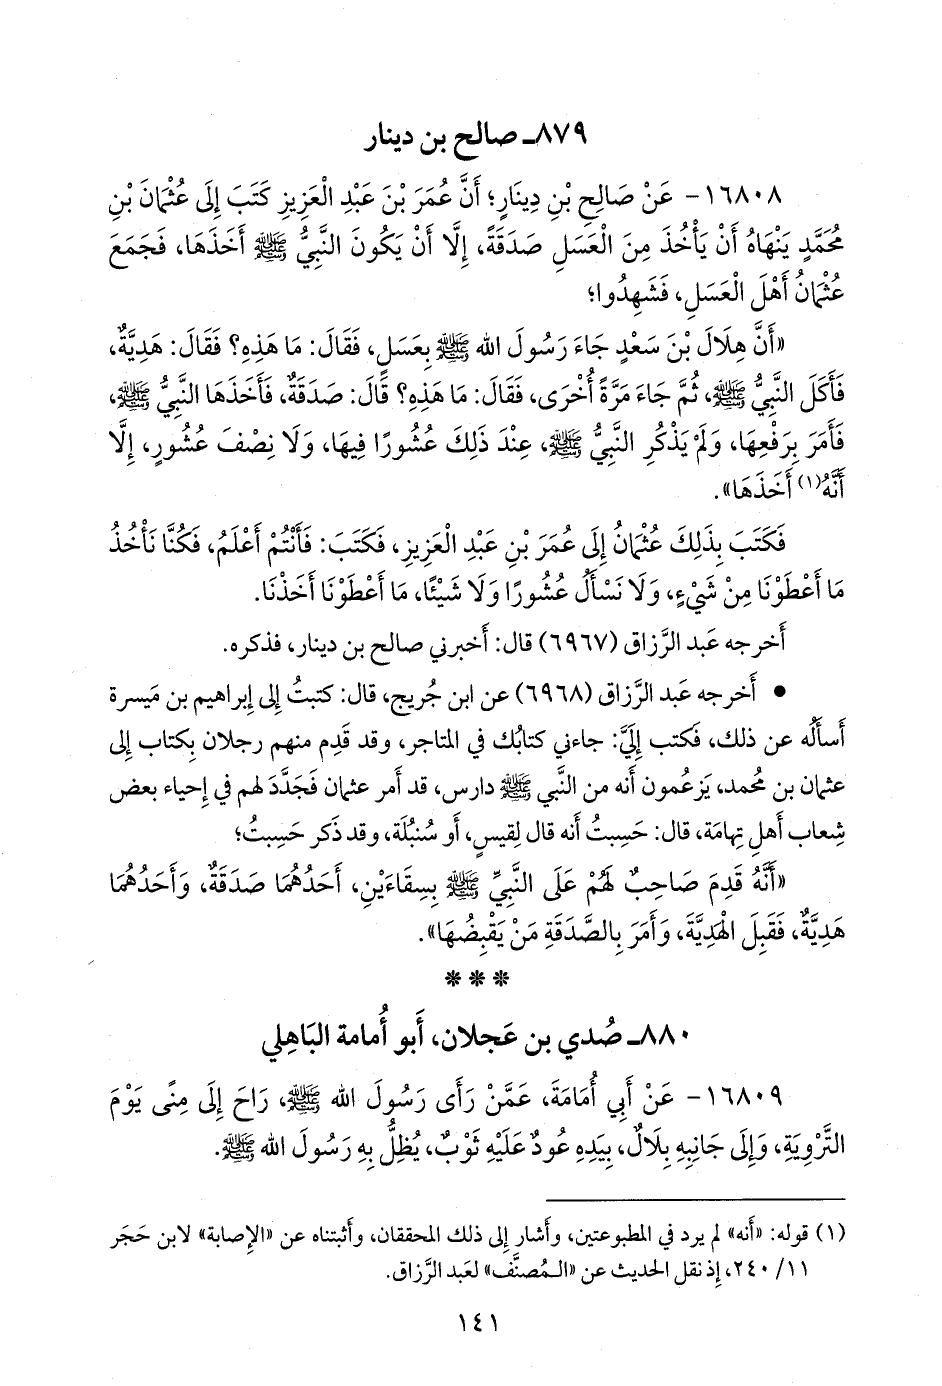 ٨٧٩ـ صالح بن دينار
١٦٨٠٨- عَنْ صَالِحِ بْنِ دِينَارٍ؛ أَنَّ عُمَرَ بْنَ عَبْدِ الْعَزِيزِ كَتَبَ إِلَى عُثْمَانَ بْنِ
مُحَمَّدٍ يَنْهَاهُ أَنْ يَأْخُذَ مِنَ الْعَسَلِ صَدَقَةً، إِلَّا أَنْ يَكُونَ النَّبِيُّ ﷺ أَخَذَهَا، فَجَمَعَ
عُثْمَانُ أَهْلَ الْعَسَلِ، فَشَهِدُوا؛
«أَنَّ هِلَالَ بْنَ سَعْدٍ جَاءَ رَسُولَ الله ﷺ بِعَسَلٍ، فَقَالَ: مَا هَذِهِ؟ فَقَالَ: هَدِيَّةٌ،
فَأَكَلَ النَّبِيُّ ﷺ، ثُمَّ جَاءَ مَرَّةً أُخْرَى، فَقَالَ: مَا هَذِهِ؟ قَالَ: صَدَقَةٌ، فَأَخَذَهَا النَّبِيُّ ﷺ،
فَأَمَرَ بِرَفْعِهَا، وَلَمْ يَذْكُرِ النَّبِيُّ ﷺ، عِنْدَ ذَلِكَ عُشُورًا فِيهَا، وَلَا نِصْفَ عُشُورٍ، إِلَّا
أَنَّهُ(١) أَخَذَهَا».
فَكَتَبَ بِذَلِكَ عُثْمَانُ إِلَى عُمَرَ بْنِ عَبْدِ الْعَزِيزِ، فَكَتَبَ: فَأَنْتُمْ أَعْلَمُ، فَكُنَّا نَأْخُذُ
مَا أَعْطَوْنَا مِنْ شَيْءٍ، وَلَا نَسْأَلُ عُشُورًا وَلَا شَيْئًا، مَا أَعْطَوْنَا أَخَذْنَا.
أَخرجه عَبد الرَّزاق (٦٩٦٧) قال: أَخبرني صالح بن دينار، فذكره.
• أَخرجه عَبد الرَّزاق (٦٩٦٨) عن ابن جُريج، قال: كتبتُ إِلى إِبراهيم بن مَيسرة
أَسأَلُه عن ذلك، فَكتب إِلَيَّ: جاءني كتابُك في المتاجر، وقد قَدِم منهم رجلان بِكتاب إِلى
عثمان بن محمد، يَزعُمون أَنه من النَّبي ﷺ دارس، قد أَمر عثمان فَجَدَّدَ لهم في إِحياء بعض
شِعاب أَهلِ تِهامَة، قال: حَسِبتُ أَنه قال لِقيسٍ، أَو سُنبُلَة، وقد ذَكر حَسِبتُ؛
«أَنَّهُ قَدِمَ صَاحِبٌ لَهُمْ عَلَى النَّبِيِّ ﷺ بِسِقَاءَيْنِ، أَحَدُهُمَا صَدَقَةٌ، وَأَحَدُهُمَا
هَدِيَّةٌ، فَقَبِلَ الْهَدِيَّةَ، وَأَمَرَ بِالصَّدَقَةِ مَنْ يَقْبِضُهَا».
***
٨٨٠ـ صُدي بن عَجلان، أَبو أُمامة البَاهِلي
١٦٨٠٩- عَنْ أَبِي أُمَامَةَ، عَمَّنْ رَأَى رَسُولَ الله ﷺ، رَاحَ إِلَى مِنًى يَوْمَ
التَّرْوِيَةِ، وَإِلَى جَانِبِهِ بِلَالٌ، بِيَدِهِ عُودٌ عَلَيْهِ ثَوْبٌ، يُظِلُّ بِهِ رَسُولَ الله ﷺ.
(١) قوله: «أَنه» لم يرد في المطبوعتين، وأَشار إِلى ذلك المحققان، وأَثبتناه عن «الإِصابة» لابن حَجَر
١١/ ٢٤٠، إِذ نقل الحديث عن «المُصنَّف» لعَبد الرَّزاق.
١٤١